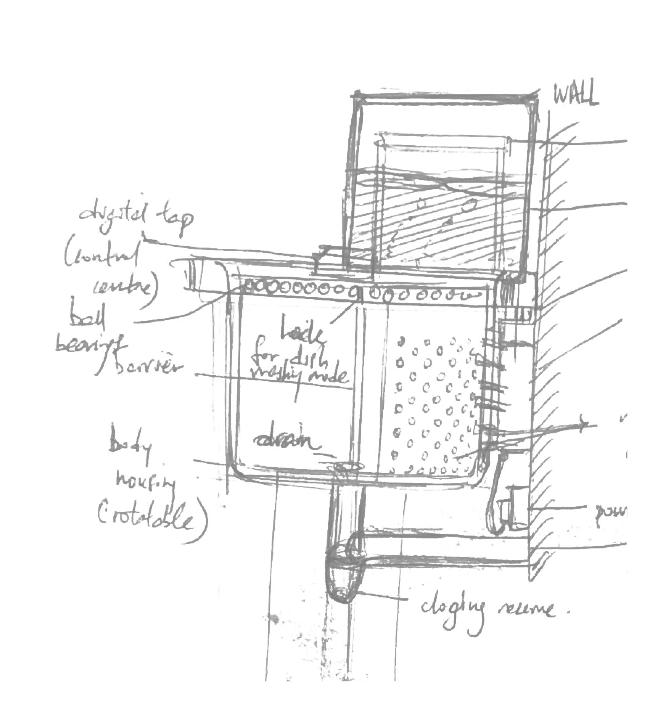 WALL
digital tap
(control
centre)
ball
bearings
barrier
for dish
washing mode
drain
body
housing
(rotatable)
pow